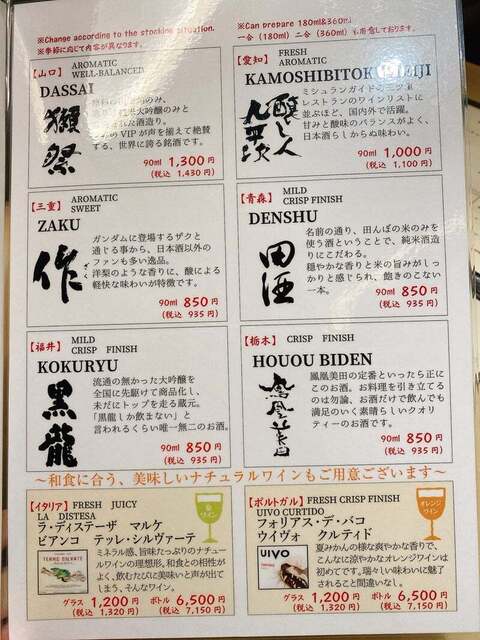 ※Change according to the stocking situation.
※季節に応じて内容が異なります。
※Can prepare 180ml&360ml
一合(180ml) 二合(360ml)も用意しております。
【山口】 AROMATIC
WELL-BALANCED
DASSAI
獺祭
のみ、
米大吟醸のみと
された酒造り。
VIPが声を揃えて絶賛
する、世界に誇る銘酒です。
90ml 1,300円
(税込 1,430円)
【愛知】 FRESH
AROMATIC
KAMOSHIBITO
醸し人九平次
ミシュランガイドの三ツ星
レストランのワインリストに
並ぶほど、国内外で活躍。
甘みと酸味のバランスがよく、
日本酒らしからぬ味わい。
90ml 1,000円
(税込 1,100円)
【三重】 AROMATIC
SWEET
ZAKU
作
ざく
ガンダムに登場するザクと
通じる事から、日本酒以外の
ファンも多い逸品。
洋梨のような香りに、酸による
軽快な味わいが特徴です。
90ml 850円
(税込 935円)
【青森】 MILD
CRISP FINISH
DENSHU
田酒
名前の通り、田んぼの米のみを
使う酒ということで、純米酒造
りにこだわる。
穏やかな香りと米の旨みがしっ
かりと感じられ、飽きのこない
一本。
90ml 850円
(税込 935円)
【福井】 MILD
CRISP FINISH
KOKURYU
黒龍
流通の無かった大吟醸を
全国に先駆けて商品化し、
未だにトップを走る蔵元。
「黒龍しか飲まない」と
言われるくらい唯一無二のお酒。
90ml 850円
(税込 935円)
【栃木】 CRISP FINISH
HOUOU BIDEN
鳳凰美田
鳳凰美田の定番といったら正に
このお酒。お料理を引き立てるの
は勿論、お酒だけで飲んでも
満足のいく素晴らしいクオリ
ティーのお酒です。
90ml 850円
(税込 935円)
～和食に合う、美味しいナチュラルワインもご用意ございます～
【イタリア】FRESH JUICY
LA DISTESA
ラ・ディステーザ マルケ
ビアンコ テッレ・シルヴァーテ
白
ワイン
TERRE SILVATE
ミネラル感、旨味たっぷりのナチュー
ルワインの理想形。和食との相性が
よく、飲むたびに美味いと声が出て
しまう、そんなワイン。
グラス 1,200円 ボトル 6,500円
(税込 1,320円) (税込 7,150円)
【ポルトガル】FRESH CRISP FINISH
UIVO CURTIDO
フォリアス・デ・バコ
ウイヴォ クルティド
オレンジ
ワイン
UIVO
夏みかんの様な爽やかな香りで、
こんなに涼やかなオレンジワインは
初めてです。瑞々しい味わいに魅了
されること間違いなし。
グラス 1,200円 ボトル 6,500円
(税込 1,320円) (税込 7,150円)